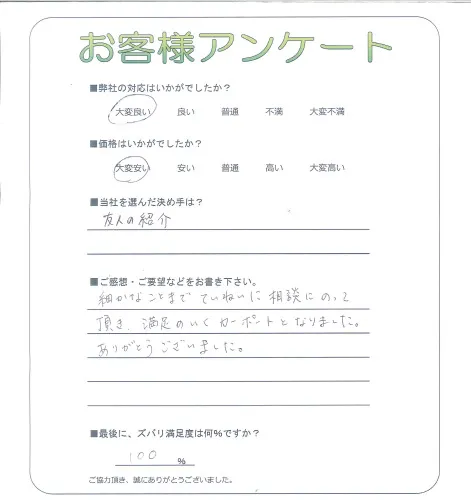 お客様アンケート
■弊社の対応はいかがでしたか?
大変良い 良い 普通 不満 大変不満
■価格はいかがでしたか?
大変安い 安い 普通 高い 大変高い
■当社を選んだ決め手は?
友人の紹介
■ご感想・ご要望などをお書き下さい。
細かなことまで ていねいに 相談にのって
頂き、満足のいくカーポートとなりました。
ありがとうございました。
■最後に、ズバリ満足度は何%ですか?
100 %
ご協力頂き、誠にありがとうございました。